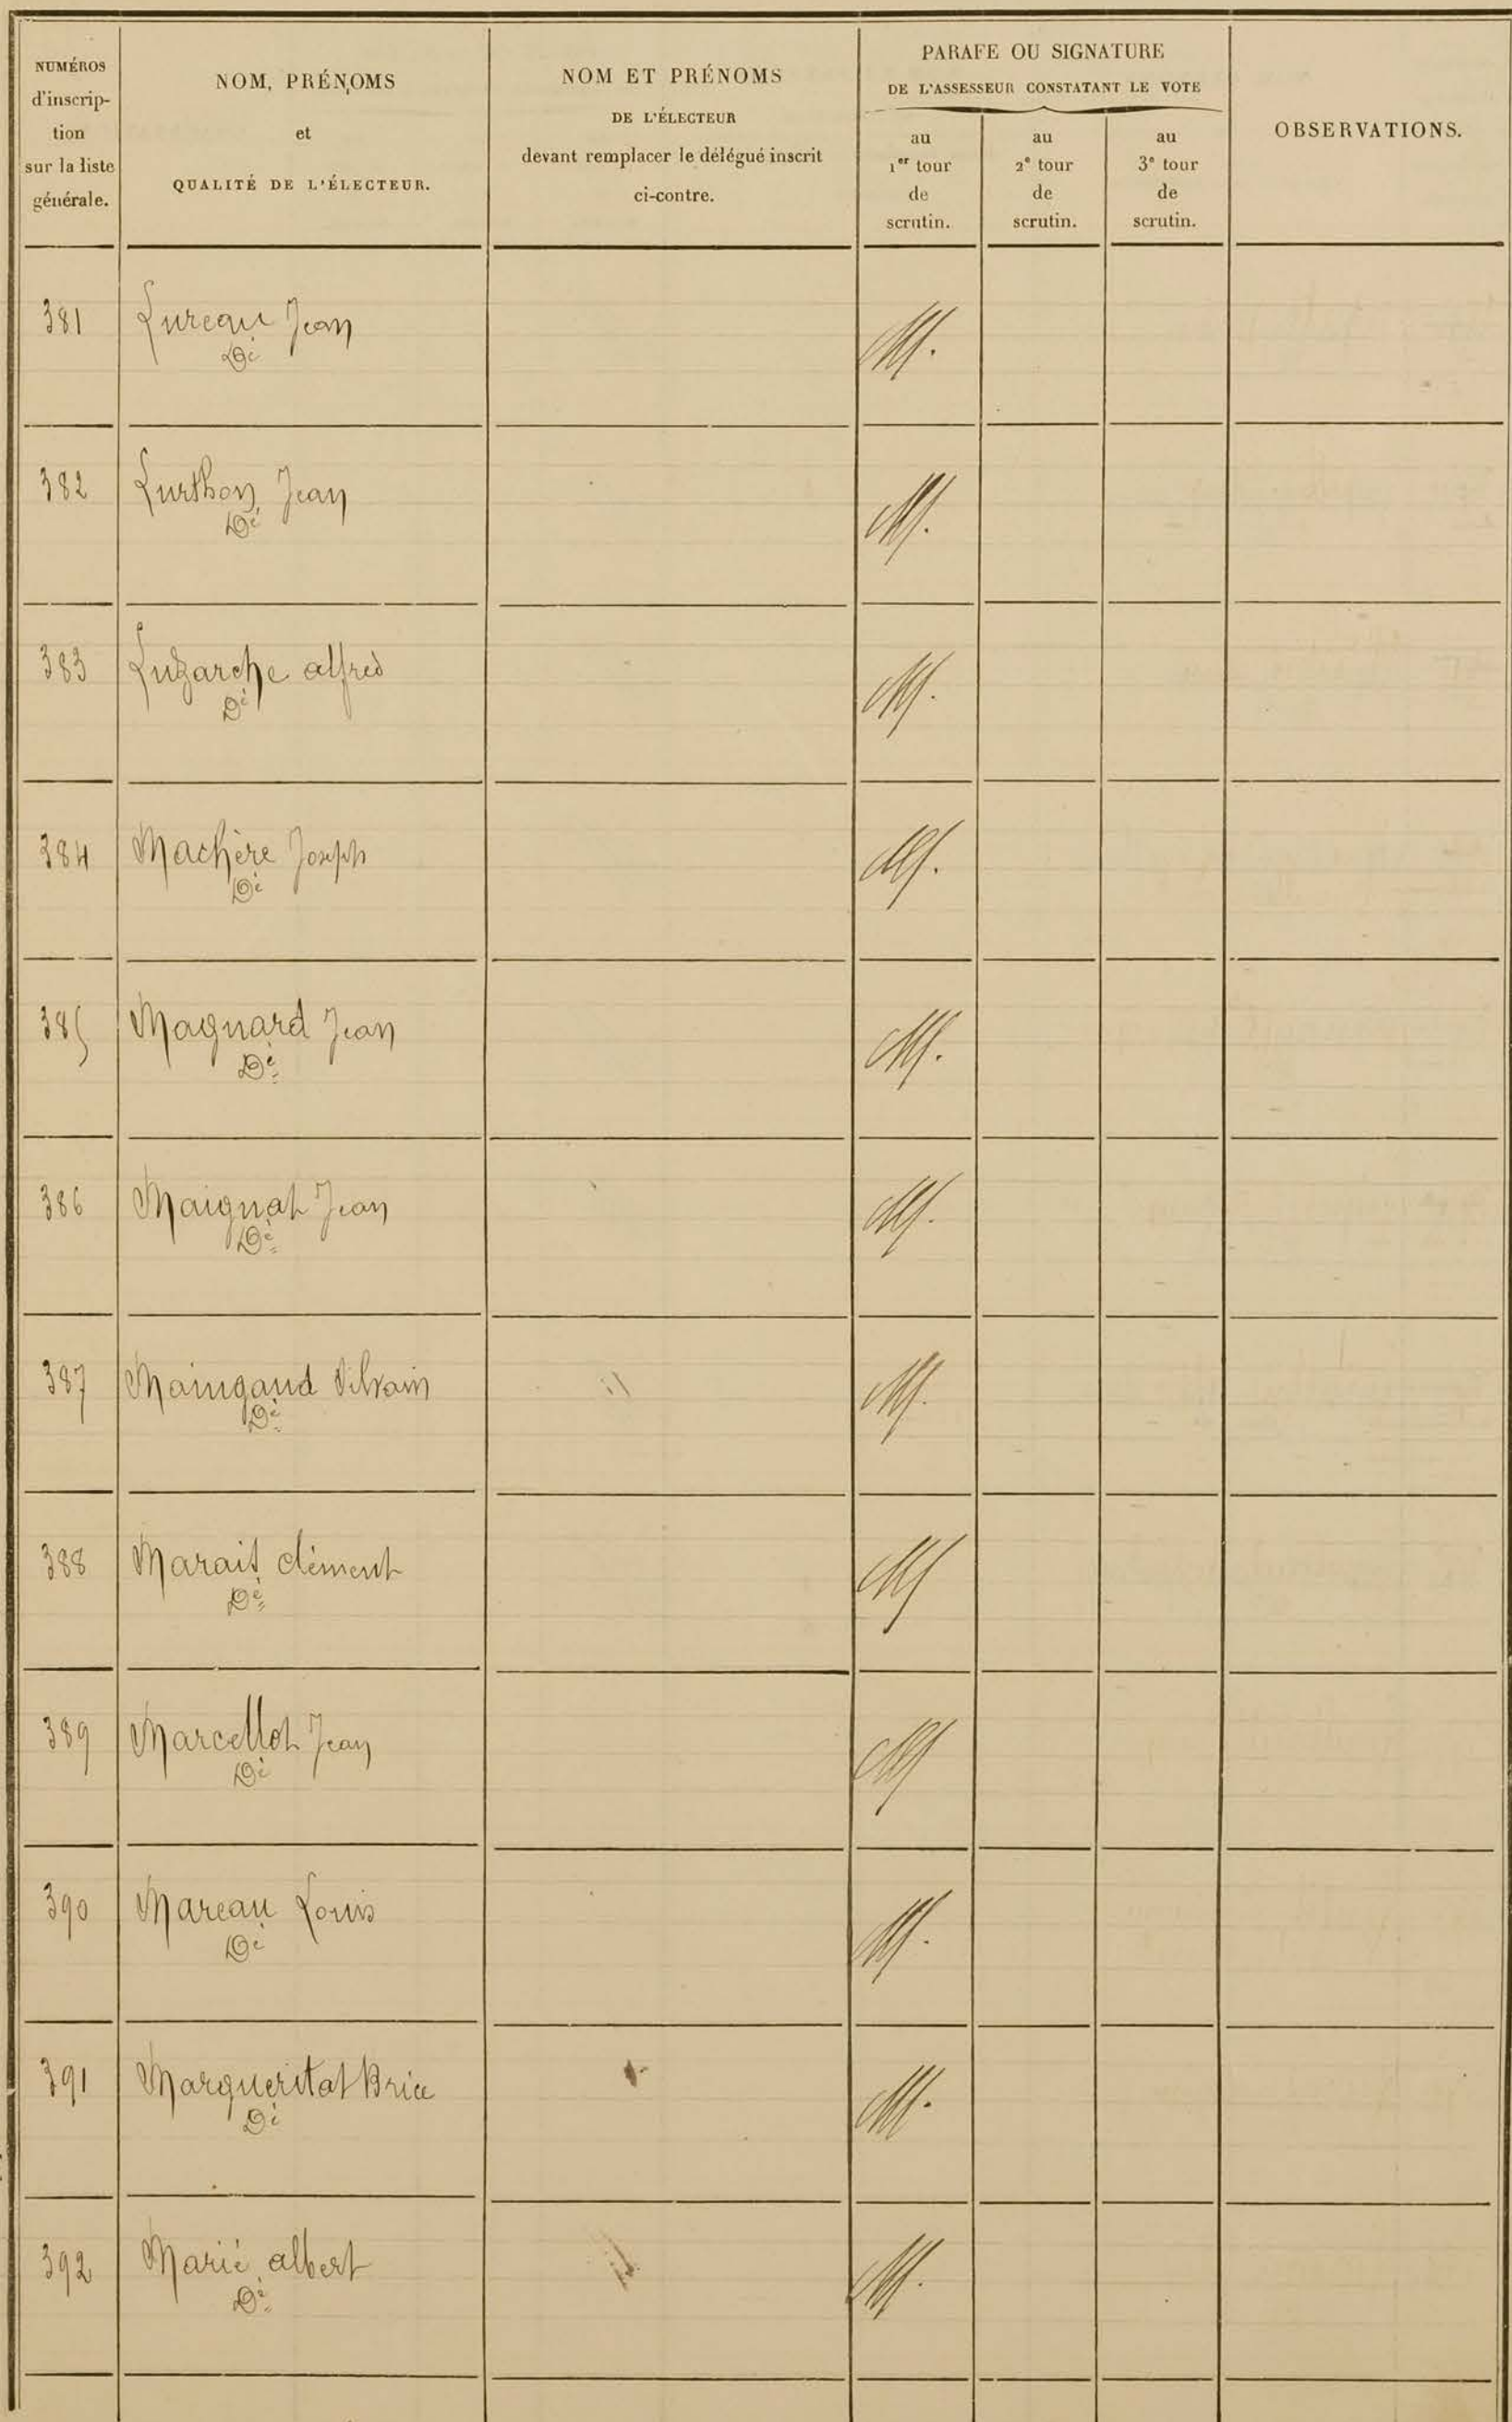 NUMÉROS
d'inscrip-
tion
sur la liste
générale.
NOM, PRÉNOMS
et
QUALITÉ DE L'ÉLECTEUR.
NOM ET PRÉNOMS
DE L'ÉLECTEUR
devant remplacer le délégué inscrit
ci-contre.
PARAFE OU SIGNATURE
DE L'ASSESSEUR CONSTATANT LE VOTE
au
1er tour
de
scrutin.
au
2e tour
de
scrutin.
au
3e tour
de
scrutin.
OBSERVATIONS.
381 Lureau Jean
Dé
382 Lurthon Jean
Dé
383 Luzarche alfred
Dé
384 Machère Joseph
Dé
385 Magnard Jean
Dé
386 Maignat Jean
Dé
387 Maingaud Silvain
Dé
388 Marais clément
Dé
389 Marcellot Jean
Dé
390 Mareau Louis
Dé
391 Margueritat Brice
Dé
392 Marié albert
Dé